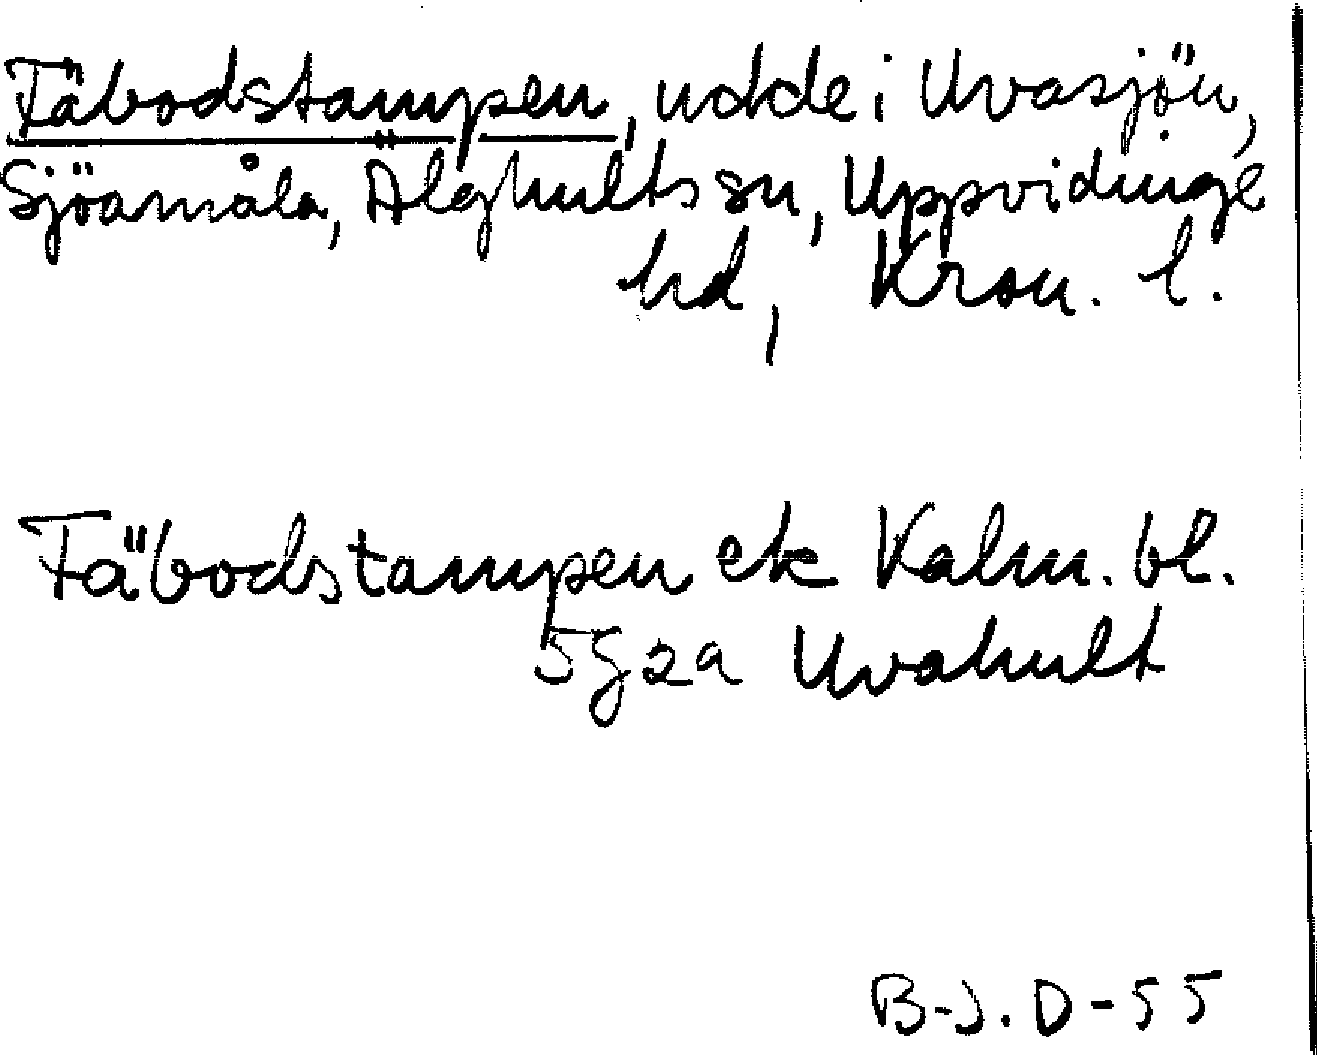 Fäbodstampen, udde i Uvasjön,
Sjöamåla, Älghults sn, Uppvidinge
hd, Kron. l.
Fäbodstampen ek Kalm. bl.
5g2a Uvahult
B-J. D-55